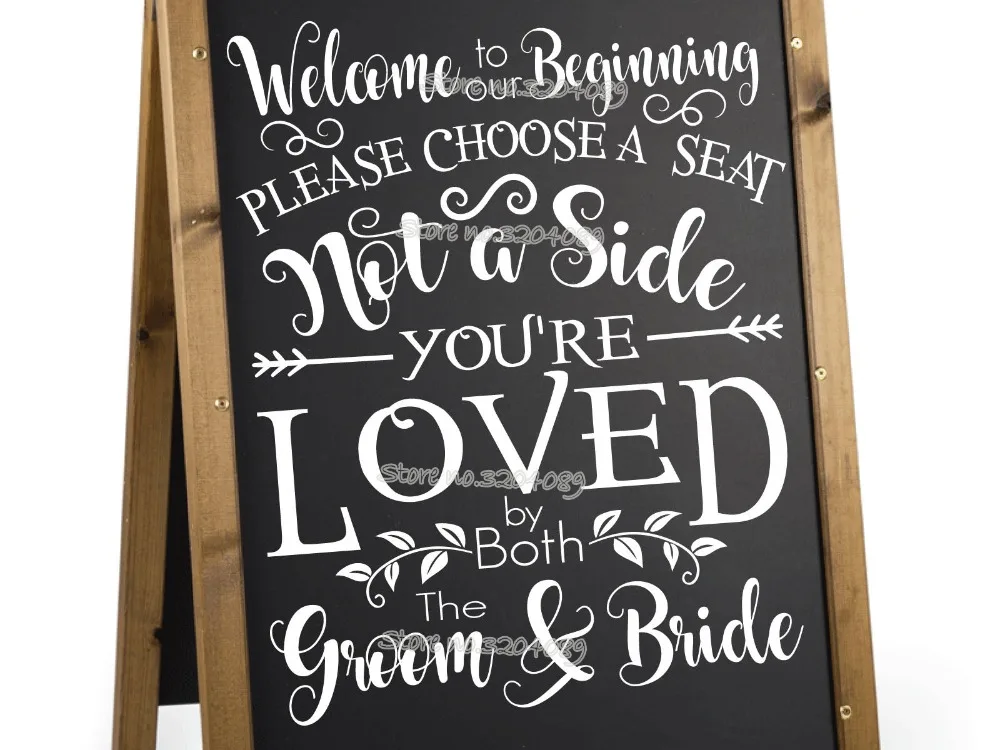 Welcome to our Beginning
Store no.3204089
PLEASE CHOOSE A SEAT
Not a Side
Store no.3204089
YOU'RE
LOVED
Store no.3204089
by
Both
The
Groom & Bride
Store no.3204089